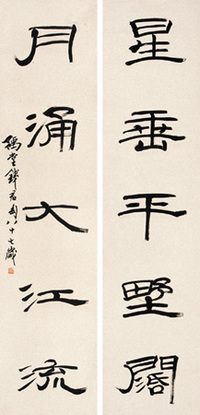 星垂平野闊
月涌大江流
錢君匋八十七歲